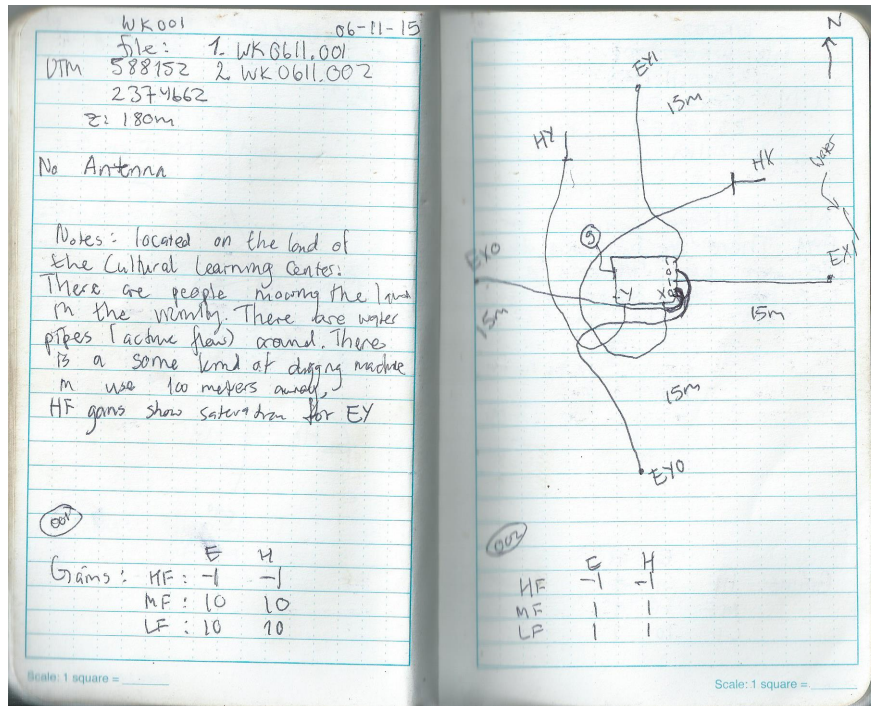 WK001
06-11-15
file: 1. WK0611.001
UTM 588152 2. WK0611.002
2374662
z: 180m
No Antenna
Notes: located on the land of
the Cultural Learning Center.
There are people mowing the lawn
in the vicinity. There are water
pipes (active flow) around. There
is a some kind of digging machine
in use 100 meters away.
HF gains show saturation for EY
001
E H
Gains: HF: -1 -1
MF: 10 10
LF: 10 10
Scale: 1 square =
N
EY1
15m
HY
HX
Water
EX0
EX1
Y X
15m
15m
15m
EY0
002
E H
HF -1 -1
MF 1 1
LF 1 1
Scale: 1 square =